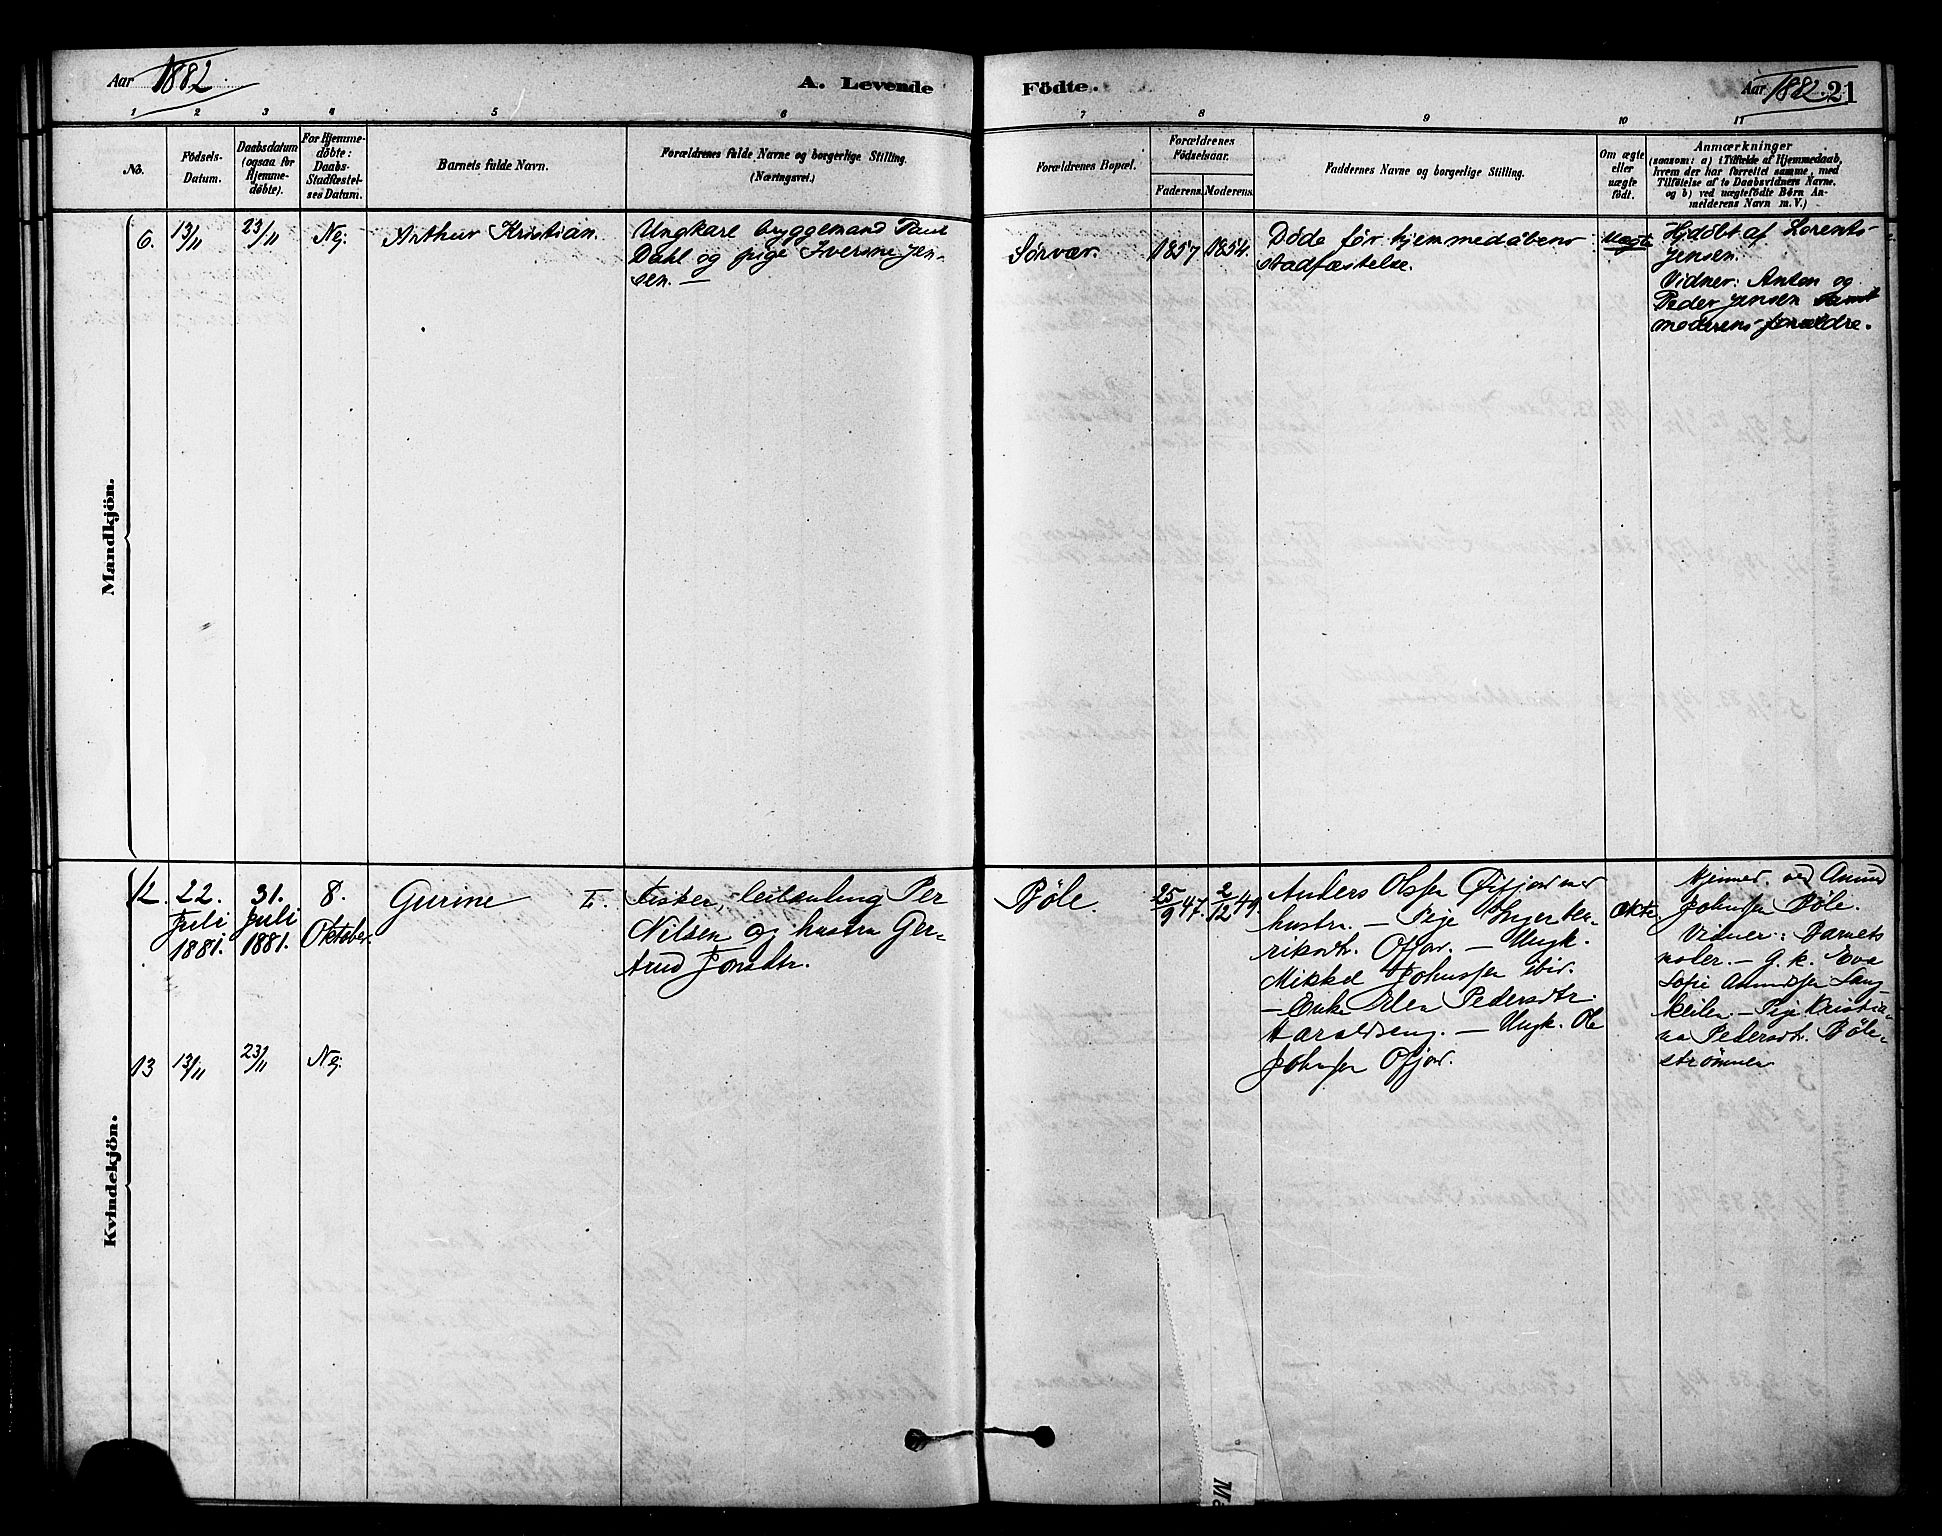 Aar 1882
A. Levende
Födte.
Aar 1882. 21
1 2 3 4 5 6 7 8 9 10 11
No.
Födsels-
Datum.
Daabsdatum
(ogsaa for
Hjemme-
döbte).
For Hjemme-
döbte:
Daabs-
Stadfæstel-
ses Datum.
Barnets fulde Navn.
Forældrenes fulde Navne og borgerlige Stilling.
(Næringsvei.)
Forældrenes Bopæl.
Forældrenes
Födselsaar.
Faderens. Moderens.
Faddernes Navne og borgerlige Stilling.
Om ægte
eller
uægte
født.
Anmærkninger
(saasom: a) i Tilfælde af Hjemmedaab,
hvem der har forrettet samme, med
Tilföielse af to Daabsvidners Navne,
og b) ved uægtefödte Börn An-
melderens Navn m. V.)
Mandkjön.
6. 13/11 23/11 Nej. Arthur Kristian.
Ungkarl bryggemand Paul
Dahl og pige Iversine Jen-
sen. —
Sørvær. 1857 1854.
Döde før hjemmedåbens
stadfæstelse.
Uægte
Hjdöbt af Lorents
Jensen.
Vidner: Anton og
Peder Jensen samt
moderens forældre.
Kvindekjön.
12. 22.
Juli
1881.
31.
Juli
1881.
8.
Oktober.
Gurine I.
Fisker, leilænding Per
Nilsen og hustru Ger-
trud Jonsdtr.
Böle. 25/9 47. 2/12 49.
Anders Olssen Öxfjord med
hustru. — Pige
riksdt. Ofjor. — Ungk.
Mikkel Johnssen ibid.
— Enke Elen Pedersdtr.
Haraldseng. — Ungk. Ole
Johnsen Ofjor.
Ækte.
Hjemmed. ved Amund
Johnssen Böle.
Vidner: Barnets
moder. — G. k. Eva
Sofie Amundsen Lang-
keilen. — Pige Kristia-
na Pedersdt. Böle-
strömmen
13 13/11 23/11 Nej.